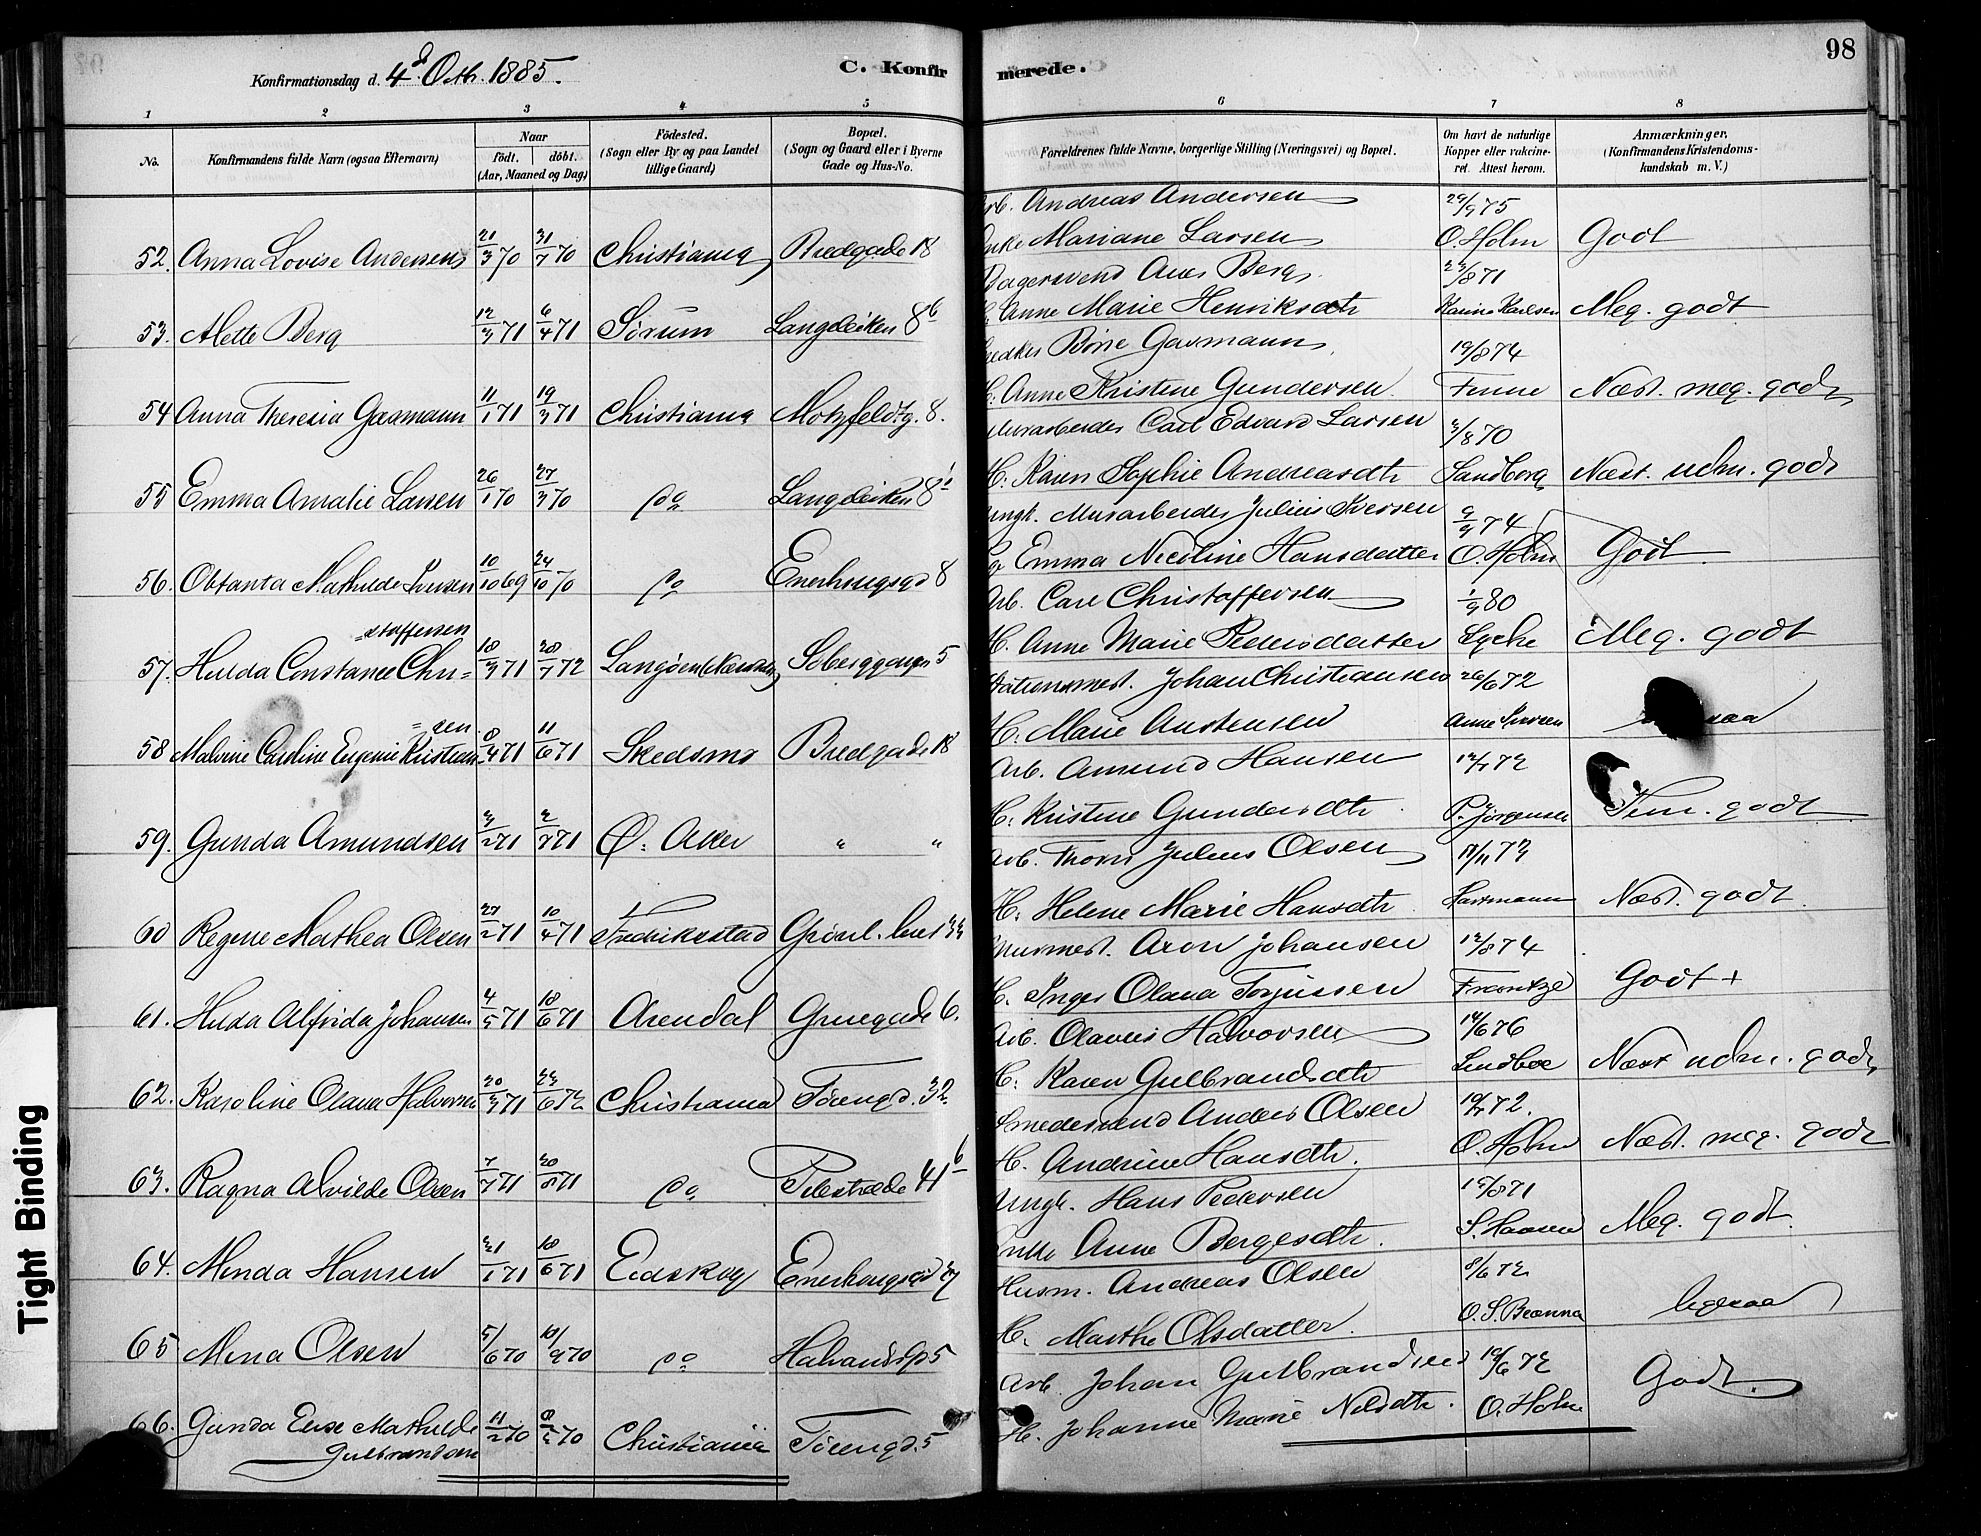 Konfirmationsdag d. 4d Octb. 1885.
C. Konfir
merede.
98
1 2 3 4 5 6 7 8
No.
Konfirmandens fulde Navn (ogsaa Efternavn)
Naar
födt. döbt.
(Aar, Maaned og Dag)
Födested.
(Sogn eller By og paa Landet
tillige Gaard)
Bopæl.
(Sogn og Gaard eller i Byerne
Gade og Hus-No.
Forældrenes fulde Navne, borgerlige Stilling (Næringsvei) og Bopæl.
Om havt de naturlige
Kopper eller vakcine-
ret. Attest herom.
Anmærkninger,
(Konfirmandens Kristendoms-
kundskab m. V.)
52. Anna Lovise Andersen 21/3 70 31/7 70 Christiania Bredgade 18
Arb. Andreas Andersen 29/9 75
Enke Mariane Larsen O. Holm Godt
53. Alette Berg 12/3 71 6/4 71 Sørum Langleiken 8b
Bagersvend Berg 23/8 71
H. Anne Marie Henriksdtr Karine Karlsen Meg. godt
54 Anna Theresia Gasmann 11/1 71 19/3 71 Christiania Motzfeldtg. 8.
Gasmann 19/8 74
H. Anne Kristine Gundersen Næst. meg. godt
55 Emma Amalie Larsen 26/1 70 27/3 70 do Langleiken 8
Murarbeider Carl Edvard Larsen 3/8 70
H. Karen Sophie Andreasdtr Sandborg Næst. udm. godt
56. Mathilde Iversen 10/10 69 24/10 70 do Enerhougsgd 8
Ungk. Murarbeider Julius Iversen 9/9 74
Emma Nicoline Hansdatter O. Holm Godt
57. Hulda Constance Chri=
=stoffersen 18/3 71 28/7 72 5
Arb. Carl Christoffersen 1/9 80
H. Anne Marie Pedersdatter Lycke Meg. godt
58 Malvine Caroline Eugenie Kristian=
=sen 8/4 71 11/6 71 Skedsmo Bredgade 18
Stationsmest. Johan Christiansen 26/6 72
H. Marie Austensen Anne Iversen
59. Gunda Amundsen 3/2 71 2/7 71 Ø. Aker " "
Arb. Amund Hansen 72
H. Kristine Gundersdtr P. Jørgensen Tem. godt
60 Regine Mathea Olsen 27/2 71 10/4 71 Fredrikstad Grønl. 33
Arb. Thorer Julius Olsen 73
H. Helene Marie Hansdtr Hartmann Næst. godt.
61. Hulda Alfrida Johansen 4/5 71 18/6 71 Arendal Grnegade 6.
Murmest. Aron Johansen 12/8 74
H. Inger Olava Torjussen Frantze Godt +
62. Karoline Olava Halvorsen 20/3 71 23/6 72 Christiania Tøiengd. 32
Arb. Olavus Halvorsen 14/6 76
H. Karen Gulbrandsdtr Lindboe Næst udm. godt
63. Ragna Alvilde Olsen 7/7 71 20/8 71 do Pilestræde 41b
Smedesvend Anders Olsen 72.
H. Andrine Hansdtr. O. Holm Næst. meg. godt
64. Minda Hansen 21/1 71 18/6 71 Eidskog Enerhougsgd 27
Ungk. Hans Pedersen 15/8 71
Enke Anne Børgesdtr. S. Hansen Meg. godt.
65 Mina Olsen 5/6 70 10/9 70 do 5
Husm. Andreas Olsen 8/6 72
H. Marthe Olsdatter. ligesaa
66. Gunda Elise Mathilde
Gulbrandsen 11/2 70 8/5 70 Christiania Tøiengd. 5
Arb. Johan Gulbrandsen 72 Godt.
H. Johanne Marie Nilsdtr. O. Holm
Tight Binding